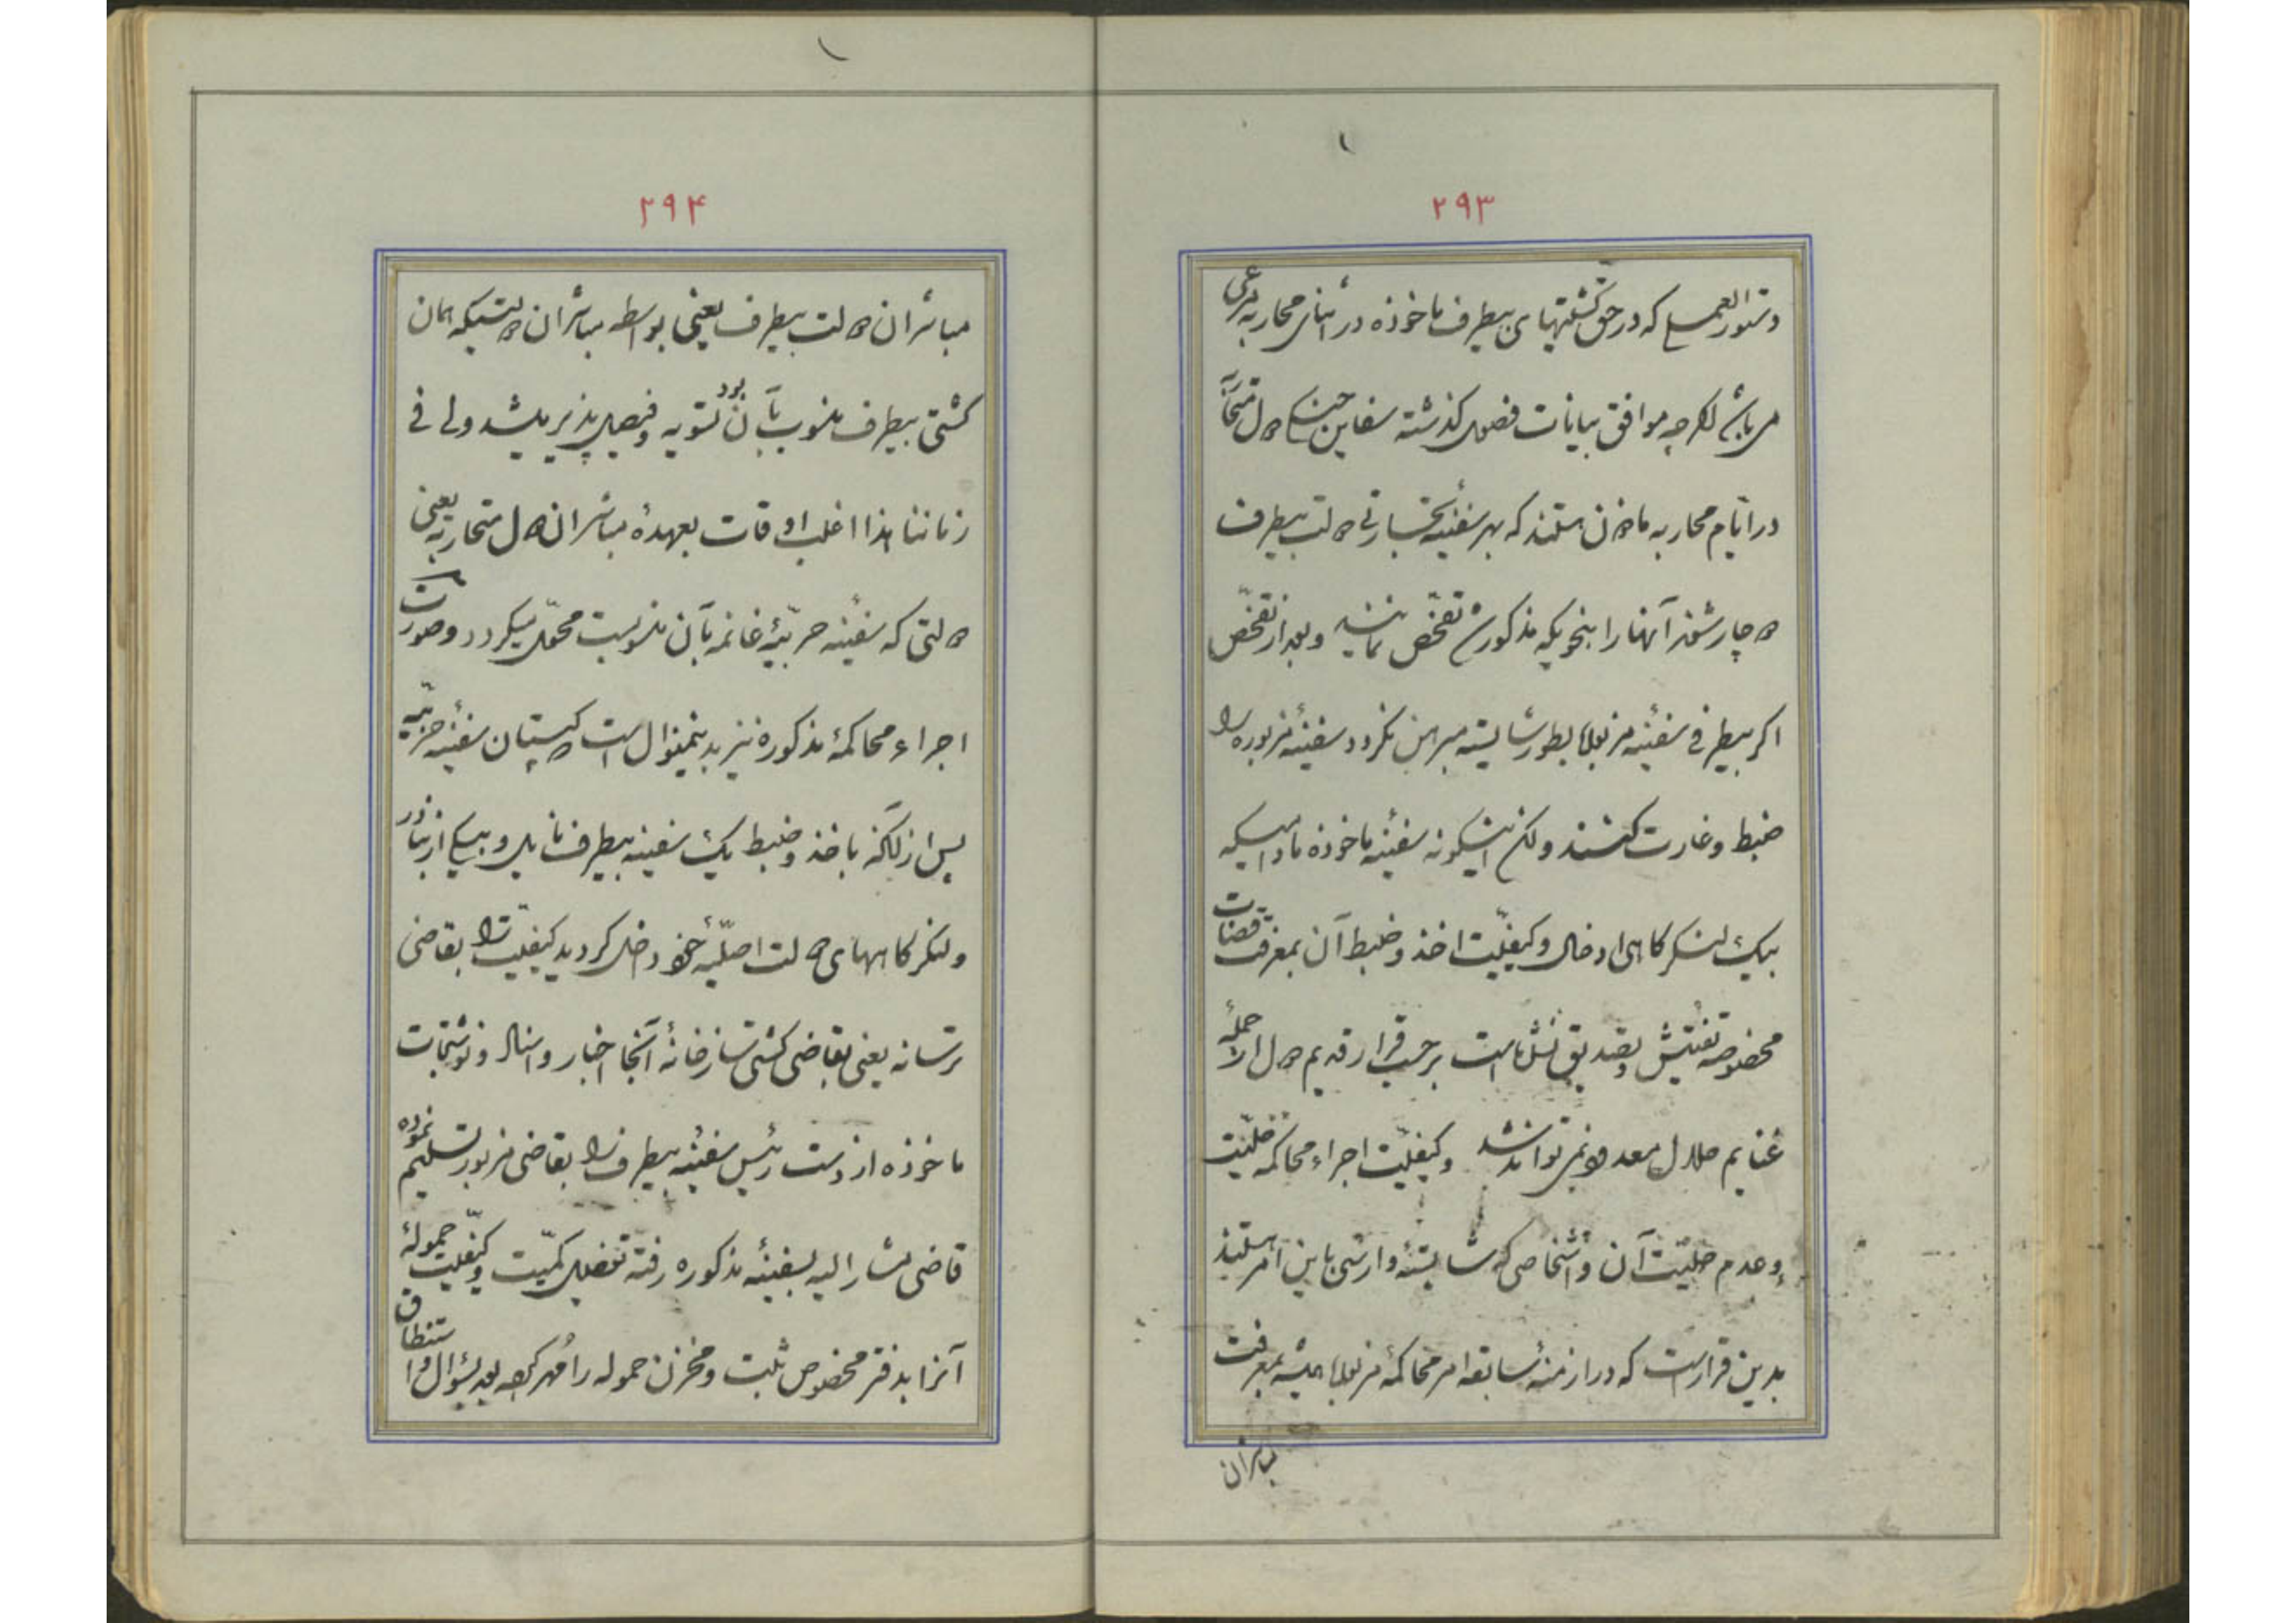 ۲۹۳
دستورالعمل که در حق کشتیهای بیطرف ماخوذه در اثنای محاربه مرعی
می باشد اگرچه موافق بیانات فصول گذشته سفاین جنگی دول متحاربه
در ایام محاربه ماذون هستند که بهر سفینه تجارتی دولت بیطرف
دچار شوند آنها را بنحویکه مذکور شد تفحص نمایند و بعد از تفحص
اگر بیطرفی سفینه مزبوره بطور شایسته مبرهن نگردد سفینه مزبوره را
ضبط و غارت کنند ولکن اینگونه سفینه ماخوذه مادامیکه
بیک لنگرگاهی ادخال و کیفیت اخذ و ضبط آن بمعرفت قضات
مخصوصه تفتیش و تصدیق نشده است برحسب قرار قدیم دول از جمله
غنایم حلال معدود نمی تواند شد و کیفیت اجراء محاکمه حلیت
و عدم حلیت آن و اشخاصی که شایسته وارسی باین امر هستند
بدین قرار است که در ازمنه سابقه امر محاکمه مزبوره همیشه بمعرفت
مباشران
۲۹۴
مباشران دولت بیطرف یعنی بواسطه مباشران دولتیکه همان
کشتی بیطرف منسوب بآن بود تسویه و فیصل پذیر میشد ولی فی
زماننا هذا اغلب اوقات بعهدهٔ مباشران دول متحاربه یعنی
دولتی که سفینه حربیهٔ غانمه بآن منسوبست محول میگردد و صورت
اجراء محاکمهٔ مذکوره نیز بدینمنوال است کپیتان سفینه حربیه
پس از آنکه باخذ و ضبط یک سفینه بیطرف نایل و بیکی از بنادر
و لنگرگاههای دولت اصلیهٔ خود داخل گردید کیفیت را بقاضی
ترسانه یعنی بقاضی کشتی سازخانهٔ آنجا اخبار و اسناد و نوشتجات
ماخوذه از دست رئیس سفینه بیطرف را بقاضی مزبور تسلیم نموده
قاضی مشار الیه بسفینهٔ مذکوره رفته تفصیل کمیت و کیفیت حمولهٔ
آنرا بدفتر مخصوص ثبت و مخزن حموله را مهر کرده بعد بسؤال و استنطاق